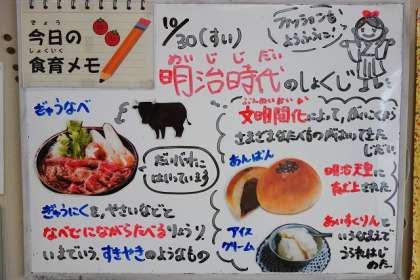 きょう
今日の
しょくいく
食育メモ
10/30(すい)
めいじじだい
明治時代のしょくじ
ファッションも
ようふうに!
ぎゅうなべ
ぶんめいかいか
文明開化によって、
さまざまな
じだい。
あんぱん
明治天皇に
だいずバターに
はいっています
ぎゅうにくを、やさいなどと
なべでにながらたべるりょうり。
いまでいう、すきやきのようなもの
アイス
クリーム
あいすくりんと
いうなまえで
うられはじめた。